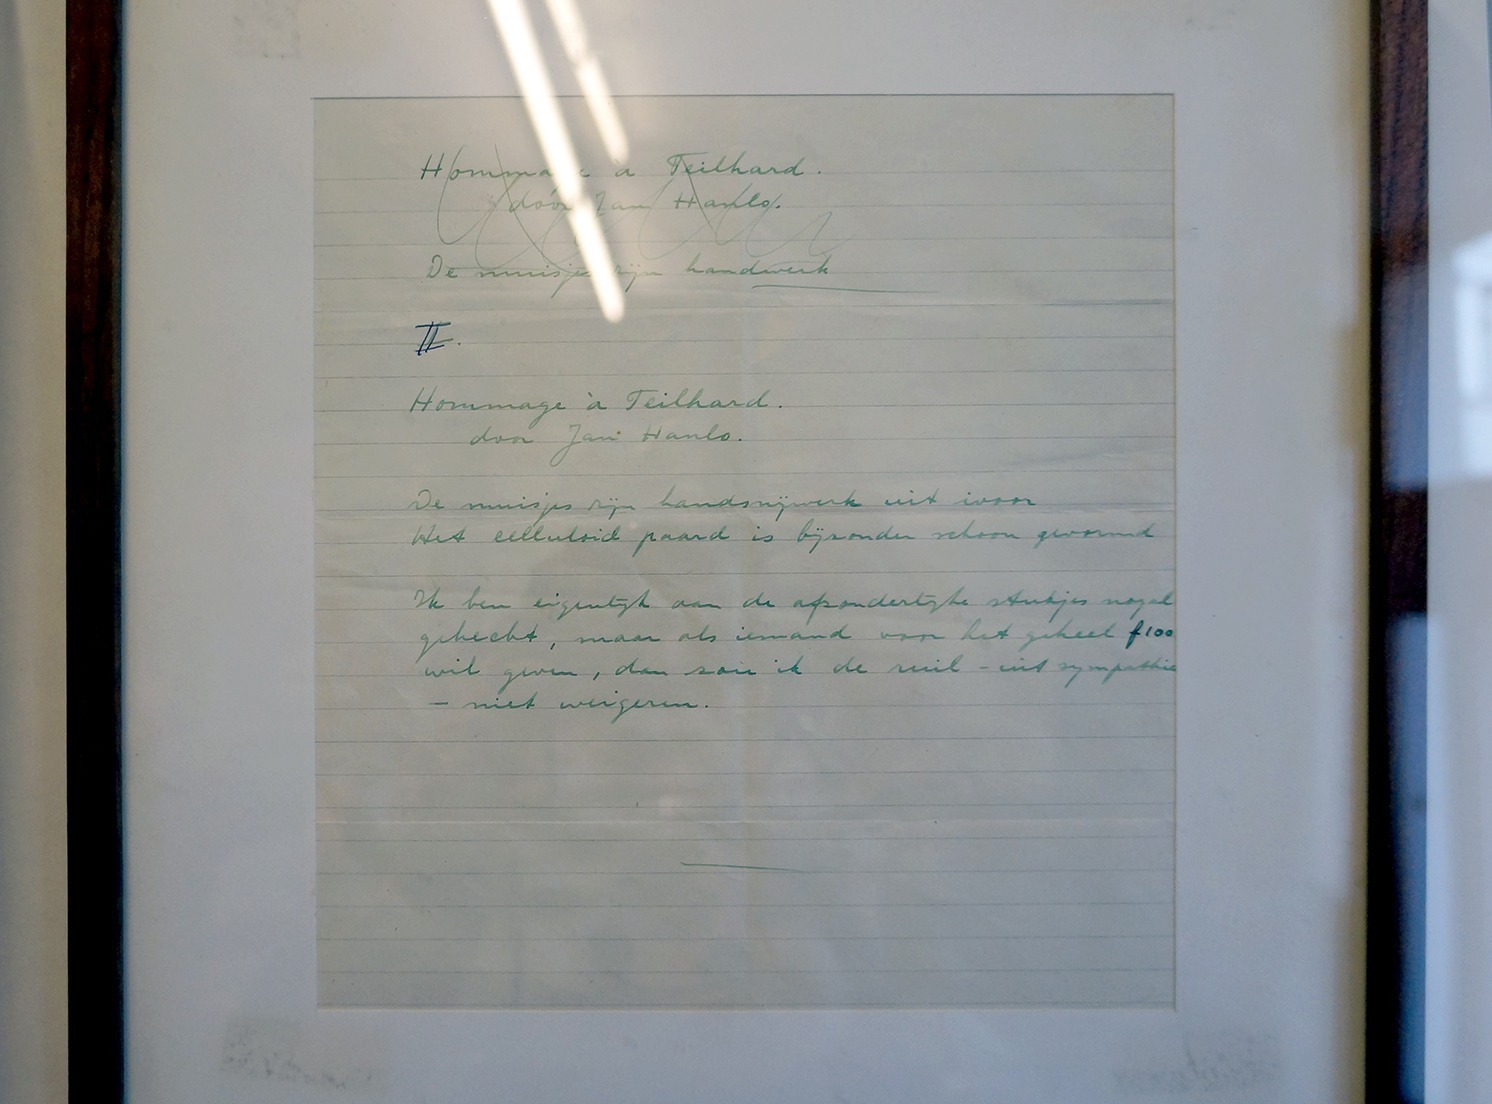 Hommage à Teilhard.
door Jan Hanlo.
De muisjes zijn handwerk
II.
Hommage à Teilhard.
door Jan Hanlo.
De muisjes zijn handsnijwerk uit ivoor
Het celluloid paard is bijzonder schoon gevormd
Ik ben eigenlijk aan de afzonderlijke stukjes nogal
gehecht, maar als iemand voor het geheel f100
wil geven, dan zou ik de ruil - uit sympathie
- niet weigeren.